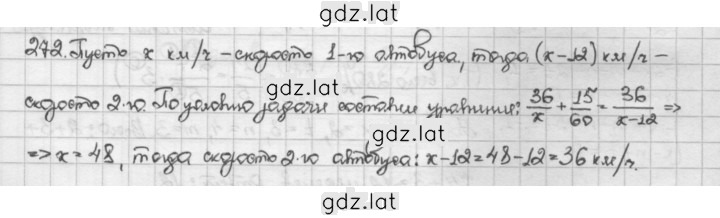 gdz.lat
272. Пусть x км/ч – скорость 1-го автобуса, тогда (x-12) км/ч –
gdz.lat
скорость 2-го. По условию задачи составим уравнение: 36/x + 15/60 = 36/(x-12) =>
gdz.lat
=> x = 48, тогда скорость 2-го автобуса: x-12=48-12=36 км/ч.
gdz.lat